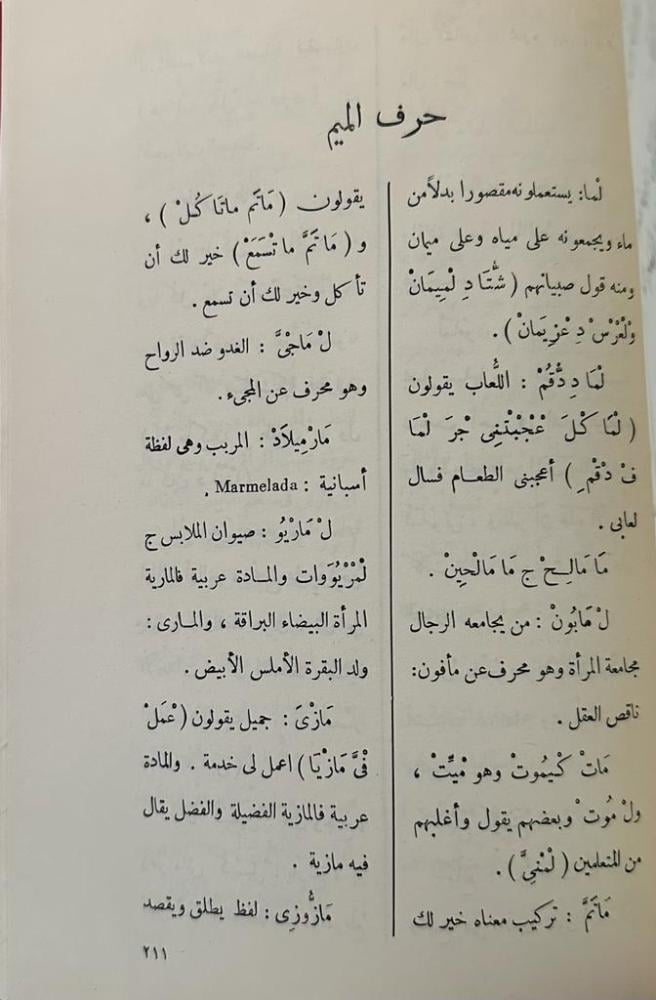 حرف الميم
لْما: يستعملونه مقصورا بدلاً من
ماء ويجمعونه على مياه وعلى ميمان
ومنه قول صبيانهم (شْتَا دِ لْمِيمَانْ
وْلْعُرْسْ دِ عْزِيمَانْ).
لْمَا دِ دُّقُمْ : اللُّعاب يقولون
(لْمَا كْلَ عْجْبْتْنِي جْرَ لْمَا
فْ دْقْمِ) أعجبنى الطعام فسال
لعابى .
مَا مَالِحْ ج مَا مَالْحِينْ .
لْ مَابُونْ : من يجامعه الرجال
مجامعة المرأة وهو محرف عن مأفون:
ناقص العقل .
مَاتْ كَيْمُوتْ وهو مْيّْتْ ،
ولْ مُوتْ وبعضهم يقول وأغلبهم
من المتعلمين (لْمْنِيَّ).
مَاتَمَّ : تركيب معناه خير لك
يقولون (مَاتَم ماتَا كُلْ) ،
و (مَا تَمَّ ما تْسْمَعْ) خير لك أن
تأكل وخير لك أن تسمع .
لْ مَاجْيَّ : الغدو ضد الرواح
وهو محرف عن المجىء.
مَارْمِيلَادْ: المربب وهى لفظة
أسبانية : Marmelada .
لْ مَارْيُو : صيوان الملابس ج
لْمْرْيُوَوات والمادة عربية فالمارية
المرأة البيضاء البراقة ، والمارى :
ولد البقرة الأملس الأبيض .
مَازْىَ : جميل يقولون (عْمَلْ
فْيَّ مَازْيَا) اعمل لى خدمة . والمادة
عربية فالمازية الفضيلة والفضل يقال
فيه مازية .
مَازُّوزِى : لفظ يطلق ويقصد
٢١١